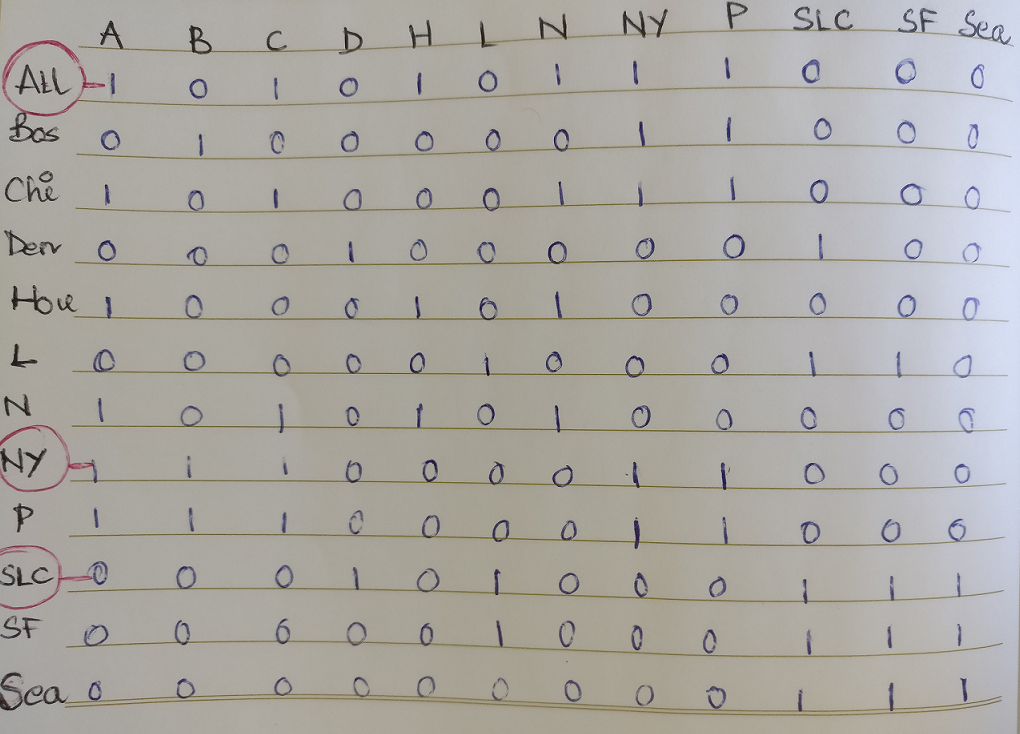 A B C D H L N NY P SLC SF Sea
Atl 1 0 1 0 1 0 1 1 1 0 0 0
Bos 0 1 0 0 0 0 0 1 1 0 0 0
Chi 1 0 1 0 0 0 1 1 1 0 0 0
Den 0 0 0 1 0 0 0 0 0 1 0 0
Hou 1 0 0 0 1 0 1 0 0 0 0 0
L 0 0 0 0 0 1 0 0 0 1 1 0
N 1 0 1 0 1 0 1 0 0 0 0 0
NY 1 1 1 0 0 0 0 1 1 0 0 0
P 1 1 1 0 0 0 0 1 1 0 0 0
SLC 0 0 0 1 0 1 0 0 0 1 1 1
SF 0 0 0 0 0 1 0 0 0 1 1 1
Sea 0 0 0 0 0 0 0 0 0 1 1 1